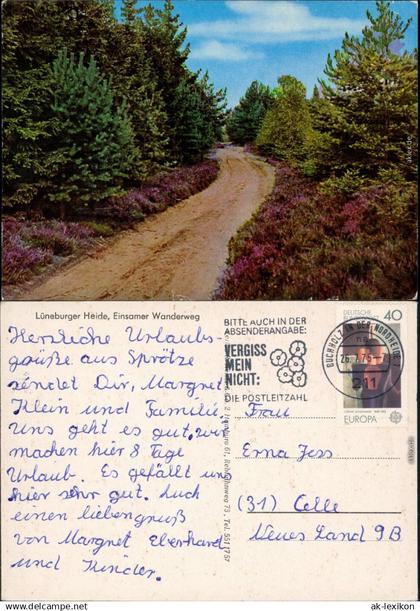 Lüneburger Heide, Einsamer Wanderweg
Herzliche Urlaubs-
grüße aus Sprötze
sendet Dir, Margret
Klein und Familie.
Uns geht es gut, wir
machen hier 8 Tage
Urlaub. Es gefällt uns
hier sehr gut. Auch
einen lieben gruß
von Margret Eberhard
und Kinder.
BITTE AUCH IN DER
ABSENDERANGABE:
VERGISS
MEIN
NICHT:
DIE POSTLEITZAHL
BUCHHOLZ IN DER NORDHEIDE
211
DEUTSCHE
40
EUROPA
Frau
Erna Jess
(31) Celle
Neues Land 9B
© www.ak-lexikon.com